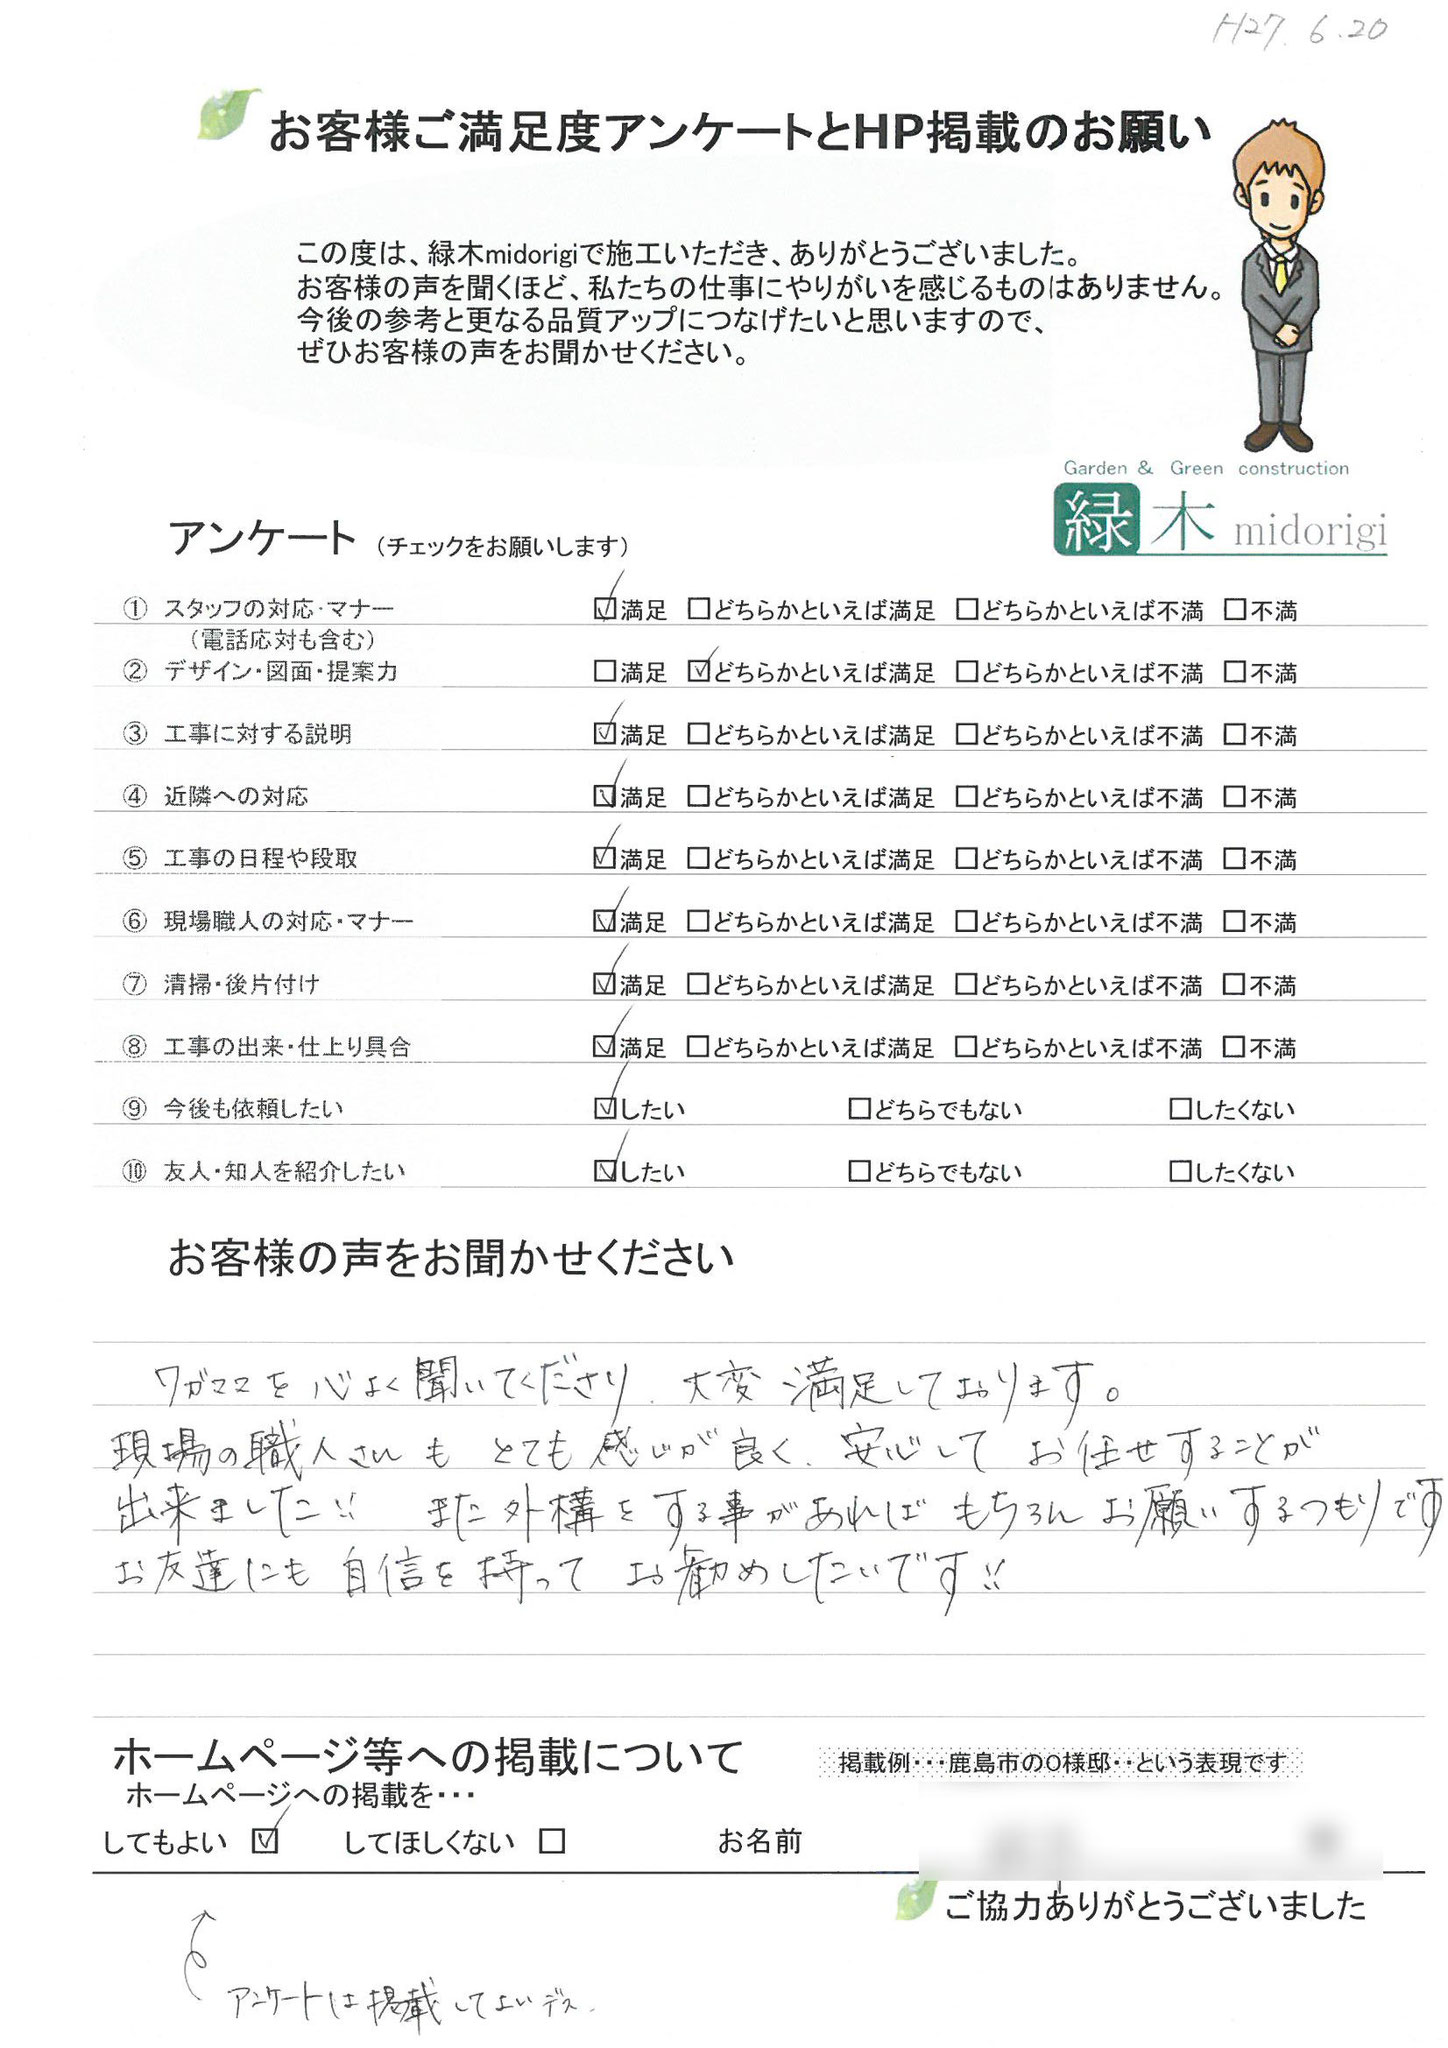 H27.6.20
お客様ご満足度アンケートとHP掲載のお願い
この度は、緑木midorigiで施工いただき、ありがとうございました。
お客様の声を聞くほど、私たちの仕事にやりがいを感じるものはありません。
今後の参考と更なる品質アップにつなげたいと思いますので、
ぜひお客様の声をお聞かせください。
Garden & Green construction
緑木 midorigi
アンケート (チェックをお願いします)
① スタッフの対応・マナー ☑満足 □どちらかといえば満足 □どちらかといえば不満 □不満
(電話応対も含む)
② デザイン・図面・提案力 □満足 ☑どちらかといえば満足 □どちらかといえば不満 □不満
③ 工事に対する説明 ☑満足 □どちらかといえば満足 □どちらかといえば不満 □不満
④ 近隣への対応 ☑満足 □どちらかといえば満足 □どちらかといえば不満 □不満
⑤ 工事の日程や段取 ☑満足 □どちらかといえば満足 □どちらかといえば不満 □不満
⑥ 現場職人の対応・マナー ☑満足 □どちらかといえば満足 □どちらかといえば不満 □不満
⑦ 清掃・後片付け ☑満足 □どちらかといえば満足 □どちらかといえば不満 □不満
⑧ 工事の出来・仕上り具合 ☑満足 □どちらかといえば満足 □どちらかといえば不満 □不満
⑨ 今後も依頼したい ☑したい □どちらでもない □したくない
⑩ 友人・知人を紹介したい ☑したい □どちらでもない □したくない
お客様の声をお聞かせください
ワガママを心よく聞いてくださり、大変満足しております。
現場の職人さんも とても感じが良く、安心して お任せすることが
出来ました!! また外構をする事があれば もちろん お願いするつもりです
お友達にも 自信を持って お勧めしたいです!!
ホームページ等への掲載について 掲載例・・・鹿島市のO様邸・・という表現です
ホームページへの掲載を・・・
してもよい ☑ してほしくない □ お名前
ご協力ありがとうございました
アンケートは掲載してよいデス.